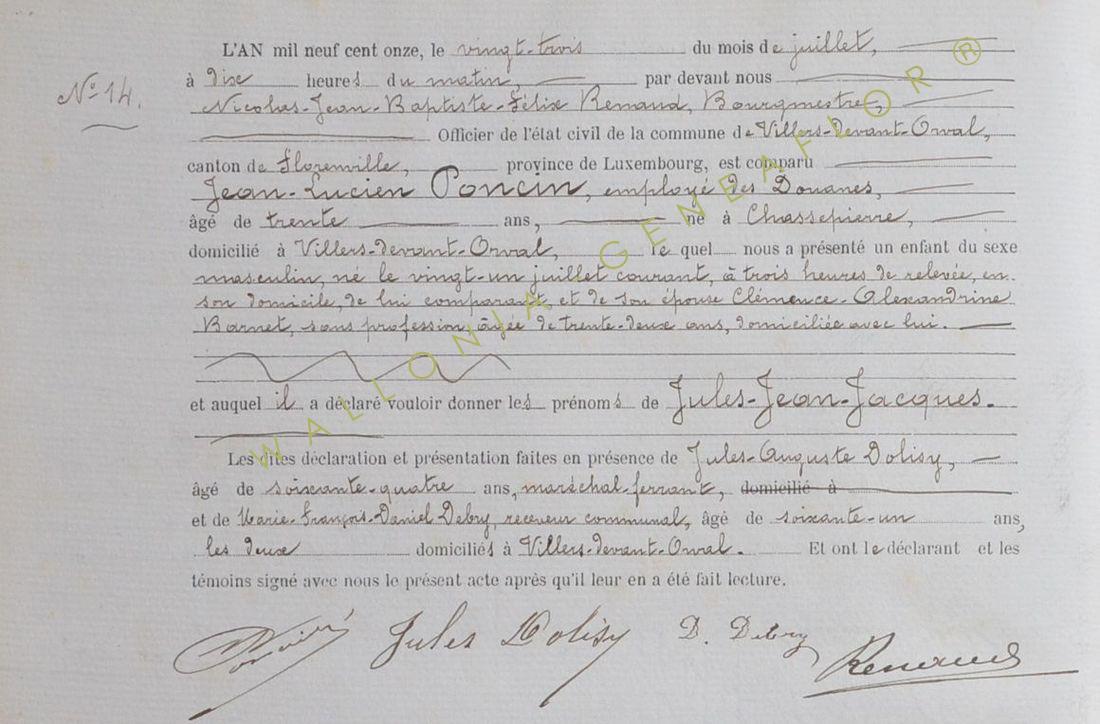 L'AN mil neuf cent onze, le vingt-trois du mois de juillet,
N° 14.
à dix heures du matin, par devant nous
Nicolas-Jean-Baptiste-Félix Renaud, Bourgmestre,
Officier de l'état civil de la commune de Villers-devant-Orval,
canton de Florenville, province de Luxembourg, est comparu
Jean-Lucien Poncin, employé des Douanes,
âgé de trente ans, né à Chassepierre,
domicilié à Villers-devant-Orval, le quel nous a présenté un enfant du sexe
masculin, né le vingt-un juillet courant, à trois heures de relevée, en
son domicile, de lui comparant, et de son épouse Clémence-Alexandrine
Barnet, sans profession, âgée de trente-deux ans, domiciliée avec lui.
et auquel il a déclaré vouloir donner les prénoms de Jules-Jean-Jacques.
Les dites déclaration et présentation faites en présence de Jules-Auguste Dolisy,
âgé de soixante-quatre ans, maréchal-ferrant, domicilié à
et de Marie-François-Daniel Debry, receveur communal, âgé de soixante-un ans,
les deux domiciliés à Villers-devant-Orval. Et ont le déclarant et les
témoins signé avec nous le présent acte après qu'il leur en a été fait lecture.
Poncin Jules Dolisy D. Debry Renaud
WALLONIA GENEAFLOR ®